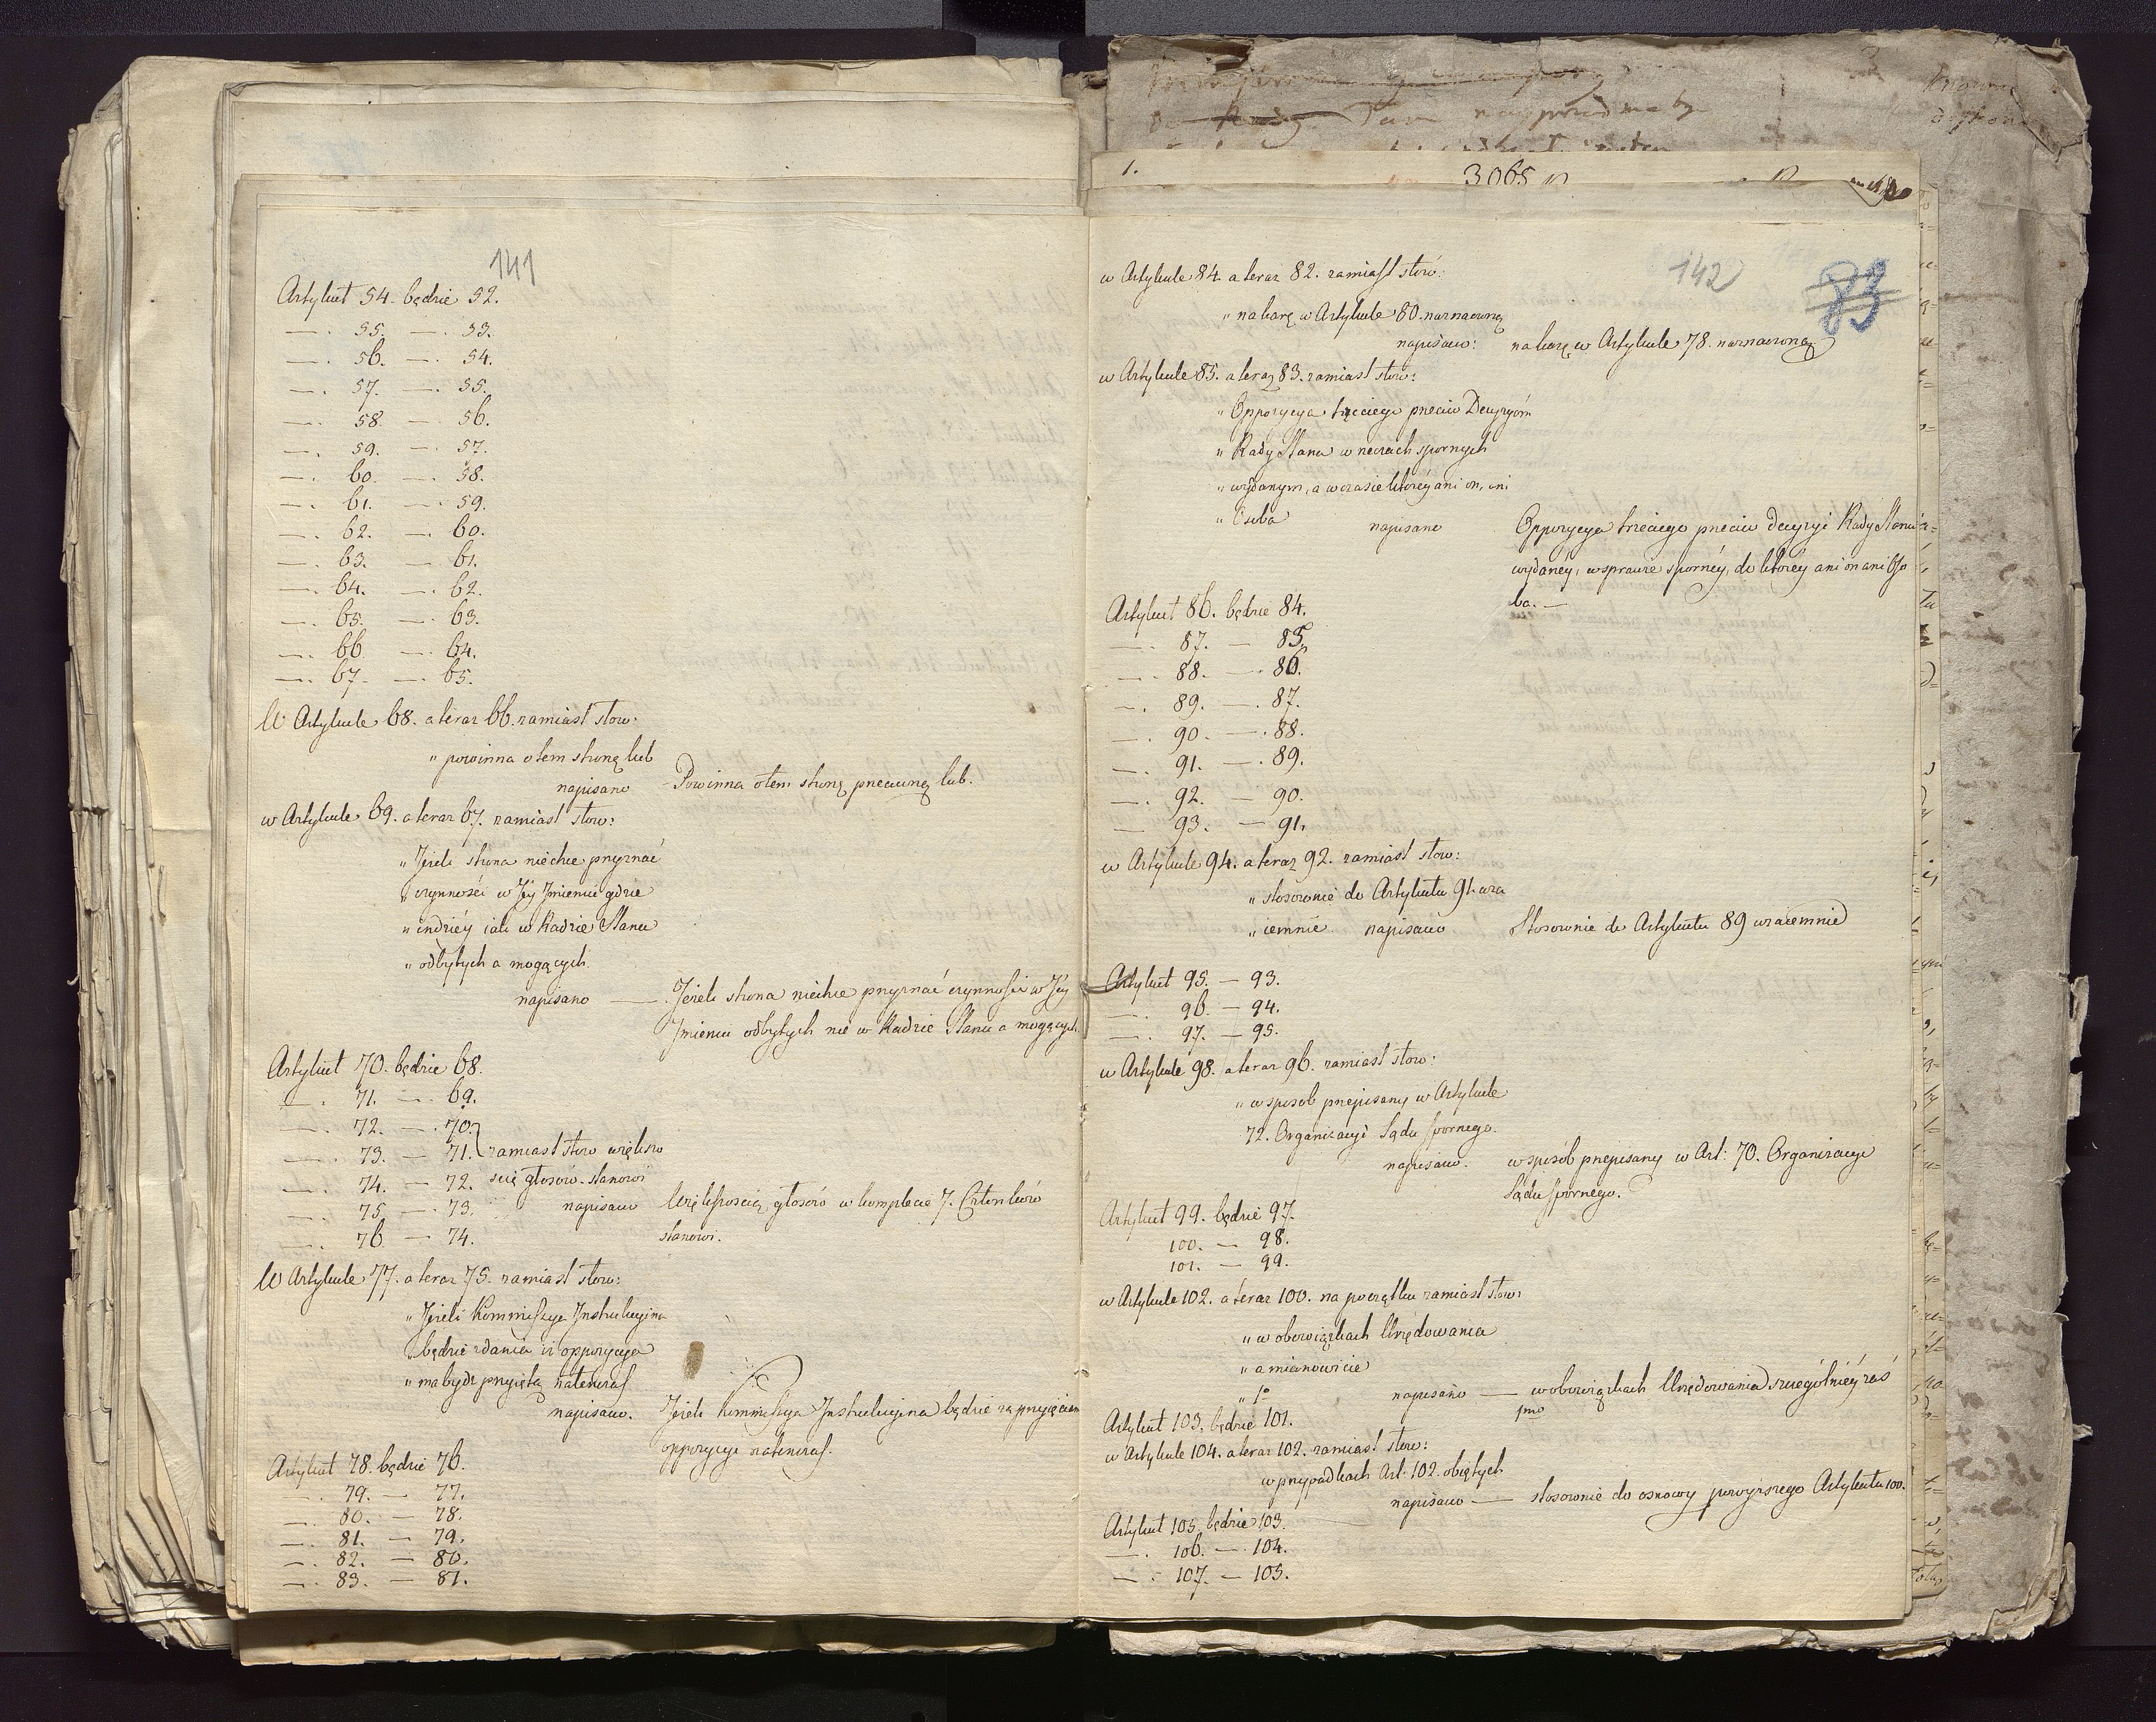 141
Artykuł 54. będzie 52.
—. 55. —. 53.
—. 56. —. 54.
—. 57. —. 55.
—. 58. —. 56.
—. 59. —. 57.
—. 60. —. 58.
—. 61. —. 59.
—. 62. —. 60.
—. 63. —. 61.
—. 64. —. 62.
—. 65. —. 63.
—. 66. —. 64.
—. 67. —. 65.
W Artykule 68. a teraz 66. zamiast słow:
„ powinna otem stronę lub
napisano Powinna otem stronę przeciwną lub.
w Artykule 69. a teraz 67. zamiast słow:
„ Jeżeli strona niechce przyznać
„ czynności w Jey Jmieniu gdzie
„ indziéy iak w Radzie Stanu
„ odbytych a mogących
napisano —— Jeżeli strona niechce przyznać czynności w Jey
Jmieniu odbytych nie w Radzie Stanu a mogących
Artykuł 70. będzie 68.
—. 71. —. 69.
—. 72. —. 70.
—. 73. — 71. zamiast słow większo
—. 74. — 72. scią głosów stanowi
—. 75. —. 73. napisano Większością głosów w komplecie 7. Członków
—. 76. — 74. stanowi.
W Artykule 77. a teraz 75. zamiast słow:
„ Jeżeli Kommissya Jnstrukcyjna
„ będzie zdania iż oppozycya
„ ma bydź przyiętą natenczas
napisano. Jeżeli Kommissya Jnstrukcyjna będzie za przyięciem
oppozycyi natenczas.
Artykuł 78. będzie 76.
—. 79. — 77.
—. 80. — 78.
—. 81. — 79.
—. 82. — 80.
—. 83. — 81.
1.
3065
142
83
w Artykule 84. a teraz 82. zamiast słow:
„ na karę w Artykule 80. naznaczoną
napisano: na karę w Artykule 78. naznaczoną
w Artykule 85. a teraz 83. zamiast słow:
„ Oppozycya trzeciego przeciw Decyzyóm
„ Rady Stanu w rzeczach spornych
„ wydanym, a w czasie któréy ani on, ani
„ Osoba napisano Oppozycya trzeciego przeciw decyzyi Rady Stanu
wydanéy, w sprawie spornéy, do któréy ani on ani Oso
ba. —
Artykuł 86. będzie 84.
—. 87. — 85.
—. 88. —. 86.
—. 89. —. 87.
—. 90. —. 88.
—. 91. —. 89.
—. 92. — 90.
— 93. — 91.
w Artykule 94. a teraz 92. zamiast słow:
„ stosownie do Artykułu 91. wza
„ iemnie napisano Stosownie do Artykułu 89 wzaiemnie
Artykuł 95. — 93.
—. 96. — 94.
—. 97. — 95.
w Artykule 98. a teraz 96. zamiast słow:
„ w sposób przepisany w Artykule
72. Organizacyi Sądu Spornego.
napisano. w sposób przepisany w Art: 70. Organizacyi
Sądu Spornego.
Artykuł 99. będzie 97.
100. — 98.
101. — 99.
w Artykule 102. a teraz 100. na początku zamiast słow:
„ w obowiązkach Urzędowania
„ a mianowicie
„ 1o napisano — w obowiązkach Urzędowania szczególniéy zaś
1mo
Artykuł 103. będzie 101.
w Artykule 104. a teraz 102. zamiast słow:
w przypadkach Art: 102. obiętych
napisano — stosownie do osnowy powyższego Artykułu 100.
Artykuł 105. będzie 103.
—. 106. —. 104.
—. 107. — 105.